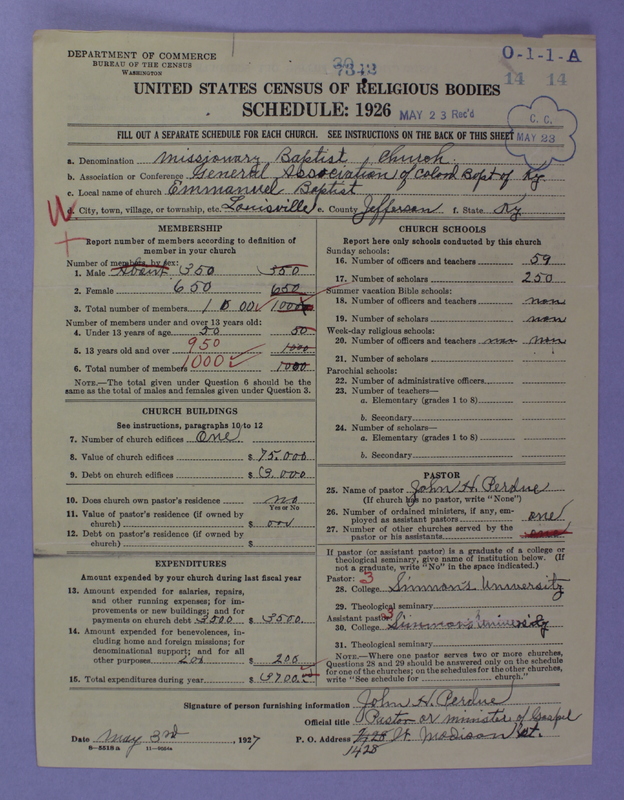 DEPARTMENT OF COMMERCE
BUREAU OF THE CENSUS
WASHINGTON
7343
O-1-1-A
14 14
UNITED STATES CENSUS OF RELIGIOUS BODIES
SCHEDULE: 1926
MAY 23 Rec'd
C. C.
MAY 23
FILL OUT A SEPARATE SCHEDULE FOR EACH CHURCH. SEE INSTRUCTIONS ON THE BACK OF THIS SHEET
a. Denomination Missionary Baptist Church.
b. Association or Conference General Association of Colord Bapt of Ky.
c. Local name of church Emmanuel Baptist
d. City, town, village, or township, etc. Louisville e. County Jefferson f. State Ky
MEMBERSHIP
Report number of members according to definition of member in your church
Number of members, by sex:
1. Male About 350 350
2. Female 650 650
3. Total number of members 1000 1000
Number of members under and over 13 years old:
4. Under 13 years of age 50 50
5. 13 years old and over 950 1000
6. Total number of members 1000 1000
NOTE.—The total given under Question 6 should be the same as the total of males and females given under Question 3.
CHURCH BUILDINGS
See instructions, paragraphs 10 to 12
7. Number of church edifices One
8. Value of church edifices $ 75.000
9. Debt on church edifices $ 3.000
10. Does church own pastor's residence no
Yes or No
11. Value of pastor's residence (if owned by church) $
12. Debt on pastor's residence (if owned by church) $
EXPENDITURES
Amount expended by your church during last fiscal year
13. Amount expended for salaries, repairs, and other running expenses; for improvements or new buildings; and for payments on church debt 3500 $ 3500
14. Amount expended for benevolences, including home and foreign missions; for denominational support; and for all other purposes 200 $ 200
15. Total expenditures during year $ 3700
CHURCH SCHOOLS
Report here only schools conducted by this church
Sunday schools:
16. Number of officers and teachers 59
17. Number of scholars 250
Summer vacation Bible schools:
18. Number of officers and teachers non
19. Number of scholars non
Week-day religious schools:
20. Number of officers and teachers non non
21. Number of scholars
Parochial schools:
22. Number of administrative officers
23. Number of teachers—
a. Elementary (grades 1 to 8)
b. Secondary
24. Number of scholars—
a. Elementary (grades 1 to 8)
b. Secondary
PASTOR
25. Name of pastor John H. Perdue
(If church has no pastor, write "None")
26. Number of ordained ministers, if any, employed as assistant pastors one
27. Number of other churches served by the pastor or his assistants
If pastor (or assistant pastor) is a graduate of a college or theological seminary, give name of institution below. (If not a graduate, write "No" in the space indicated.)
Pastor: 3
28. College Simmons University
29. Theological seminary
Assistant pastor: 3
30. College Simmons University
31. Theological seminary
NOTE.—Where one pastor serves two or more churches, Questions 28 and 29 should be answered only on the schedule for one of the churches; on the schedules for the other churches, write "See schedule for church."
Signature of person furnishing information John H. Perdue
Official title Pastor or minister of Gospel
Date May 3rd, 1927 P. O. Address W. Madison st.
1428
8-5518a 11-9064a